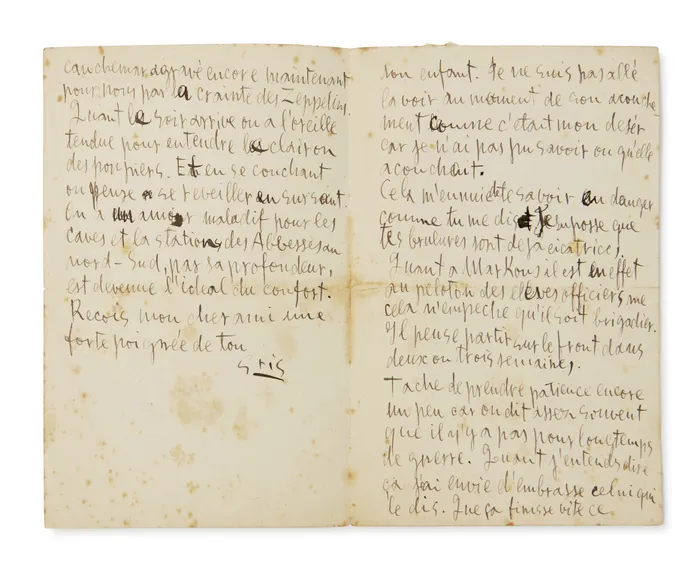 son enfant. Je ne suis pas allé
la voir au moment de son acouche-
ment comme c'était mon desir
car je n'ai pas pu savoir ou qu'elle
acouchait.
Cela m'ennuie de te savoir en danger
comme tu me dis et Je suposse que
tes brulures sont deja cicatrices,
Quant a Markous il est en effet
au peloton des eleves officiers, me
cela n'empeche qu'il soit brigadier.
Il pense partir sur le front dans
deux ou trois semaines,
Tache de prendre patience encore
un peu car on dit assez souvent
que il y'y a pas pour longtemps
de guerre. Quant j'entends dire
ça j'ai envie d'embrasse celui qui
le dis. Que ça finisse vite ce
cauchemar agravé encore maintenant
pour nous par la crainte des Zeppelins.
Quant le soir arrive on a l'oreille
tendue pour entendre le clairon
des pompiers. Et en se couchant
on pense a se reveiller en sursaut.
On a un amour maladif pour les
caves et la station des Abbesses au
nord-sud, par sa profondeur,
est devenue l'ideal du confort.
Recois mon cher ami une
forte poignée de ton
Gris